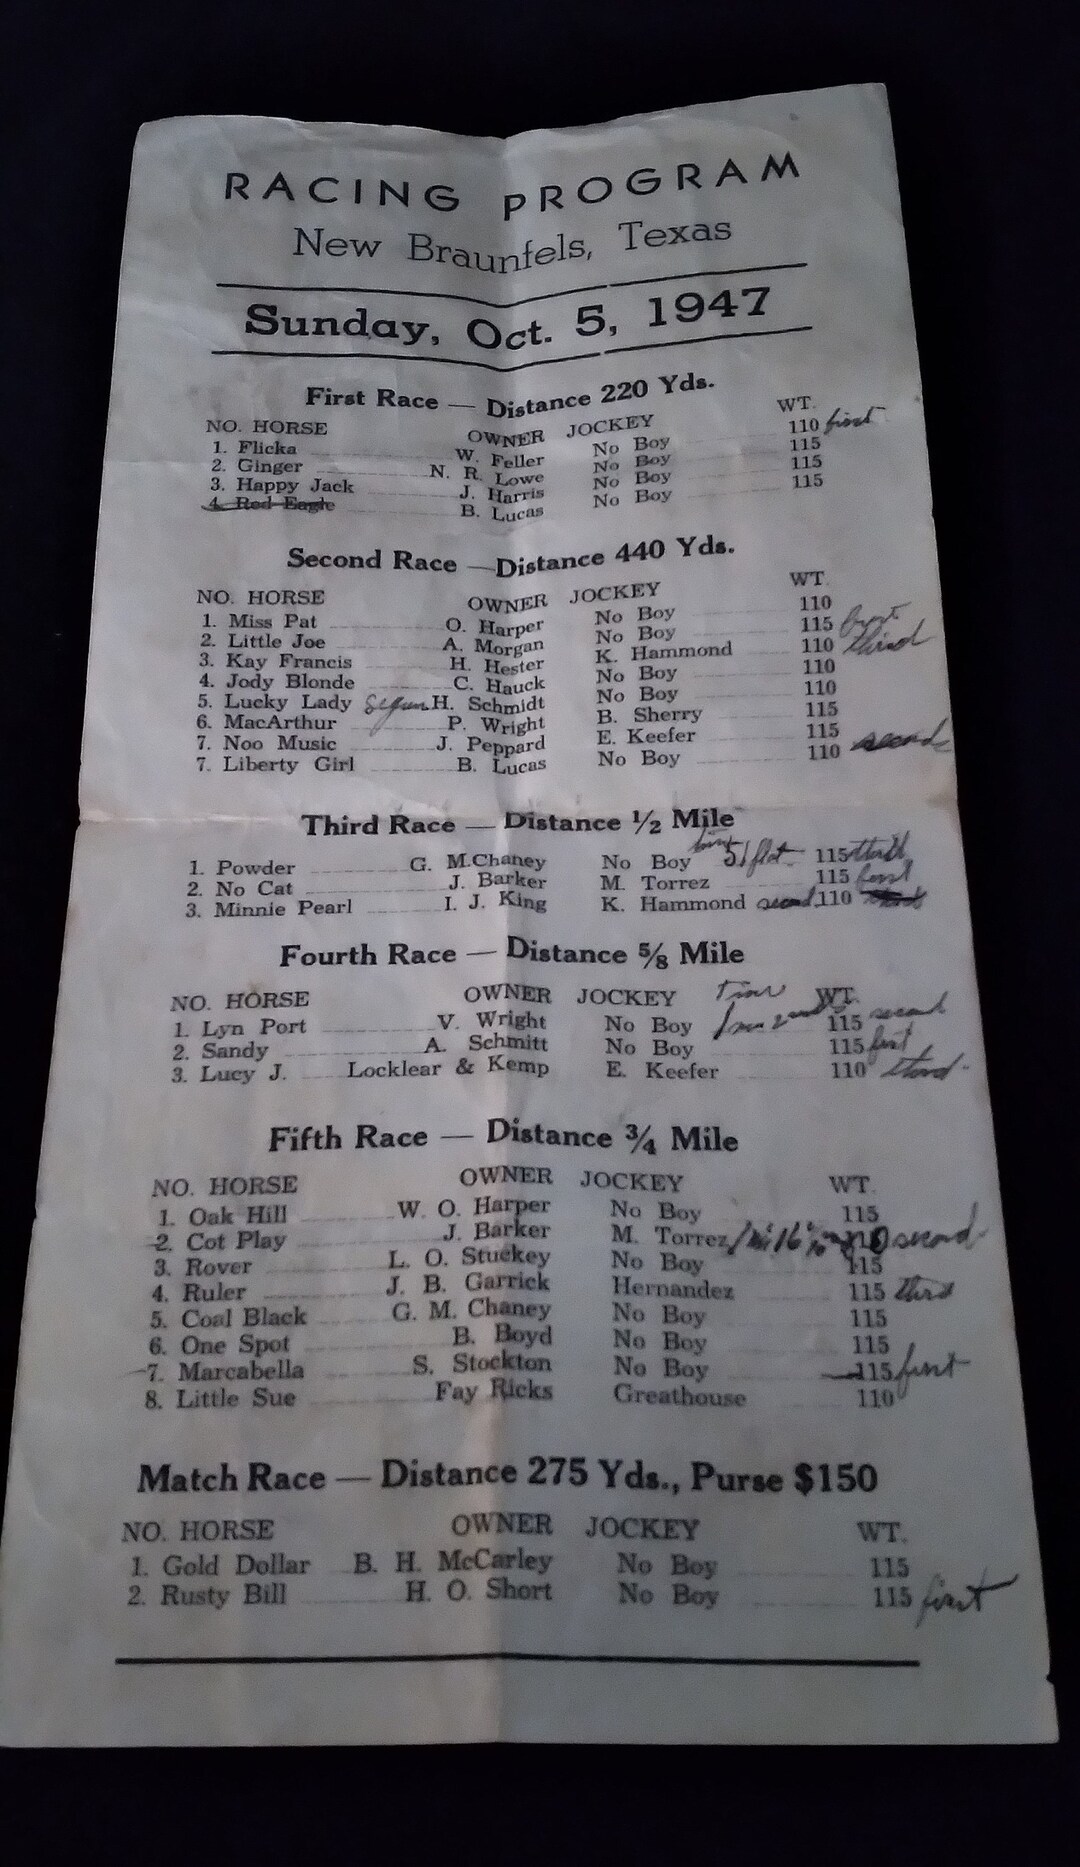 RACING PROGRAM
New Braunfels, Texas
Sunday, Oct. 5, 1947
First Race — Distance 220 Yds.
NO. HORSE OWNER JOCKEY WT.
1. Flicka W. Feller No Boy 110 first
2. Ginger N. R. Lowe No Boy 115
3. Happy Jack J. Harris No Boy 115
4. Red Eagle B. Lucas No Boy 115
Second Race — Distance 440 Yds.
NO. HORSE OWNER JOCKEY WT.
1. Miss Pat O. Harper No Boy 110
2. Little Joe A. Morgan No Boy 115 first
3. Kay Francis H. Hester K. Hammond 110 third
4. Jody Blonde C. Hauck No Boy 110
5. Lucky Lady H. Schmidt No Boy 110
6. MacArthur P. Wright B. Sherry 115
7. Noo Music J. Peppard E. Keefer 115
7. Liberty Girl B. Lucas No Boy 110 second
Third Race — Distance ½ Mile
1. Powder G. M.Chaney No Boy time 51 flat 115 third
2. No Cat J. Barker M. Torrez 115 first
3. Minnie Pearl I. J. King K. Hammond second 110
Fourth Race — Distance ⅝ Mile
NO. HORSE OWNER JOCKEY Time WT.
1. Lyn Port V. Wright No Boy 115 second
2. Sandy A. Schmitt No Boy 115 first
3. Lucy J. Locklear & Kemp E. Keefer 110 third
Fifth Race — Distance ¾ Mile
NO. HORSE OWNER JOCKEY WT.
1. Oak Hill W. O. Harper No Boy 115
2. Cot Play J. Barker M. Torrez 110 second
3. Rover L. O. Stuckey No Boy 115
4. Ruler J. B. Garrick Hernandez 115 third
5. Coal Black G. M. Chaney No Boy 115
6. One Spot B. Boyd No Boy 115
7. Marcabella S. Stockton No Boy 115 first
8. Little Sue Fay Ricks Greathouse 110
Match Race — Distance 275 Yds., Purse $150
NO. HORSE OWNER JOCKEY WT.
1. Gold Dollar B. H. McCarley No Boy 115
2. Rusty Bill H. O. Short No Boy 115 first